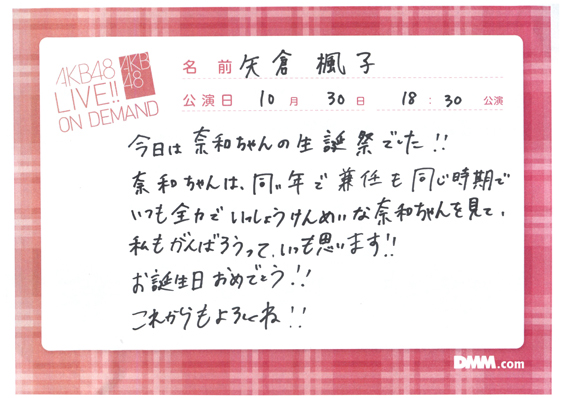 AKB48
LIVE!!
ON DEMAND
AKB
48
名 前 矢倉 楓子
公演日 10月 30日 18:30 公演
今日は奈和ちゃんの生誕祭でした!!
奈和ちゃんは、同い年で兼任も同じ時期で
いつも全力でいっしょうけんめいな奈和ちゃんを見て、
私もがんばろうって、いつも思います!!
お誕生日おめでとう!!
これからもよろしくね!!
DMM.com